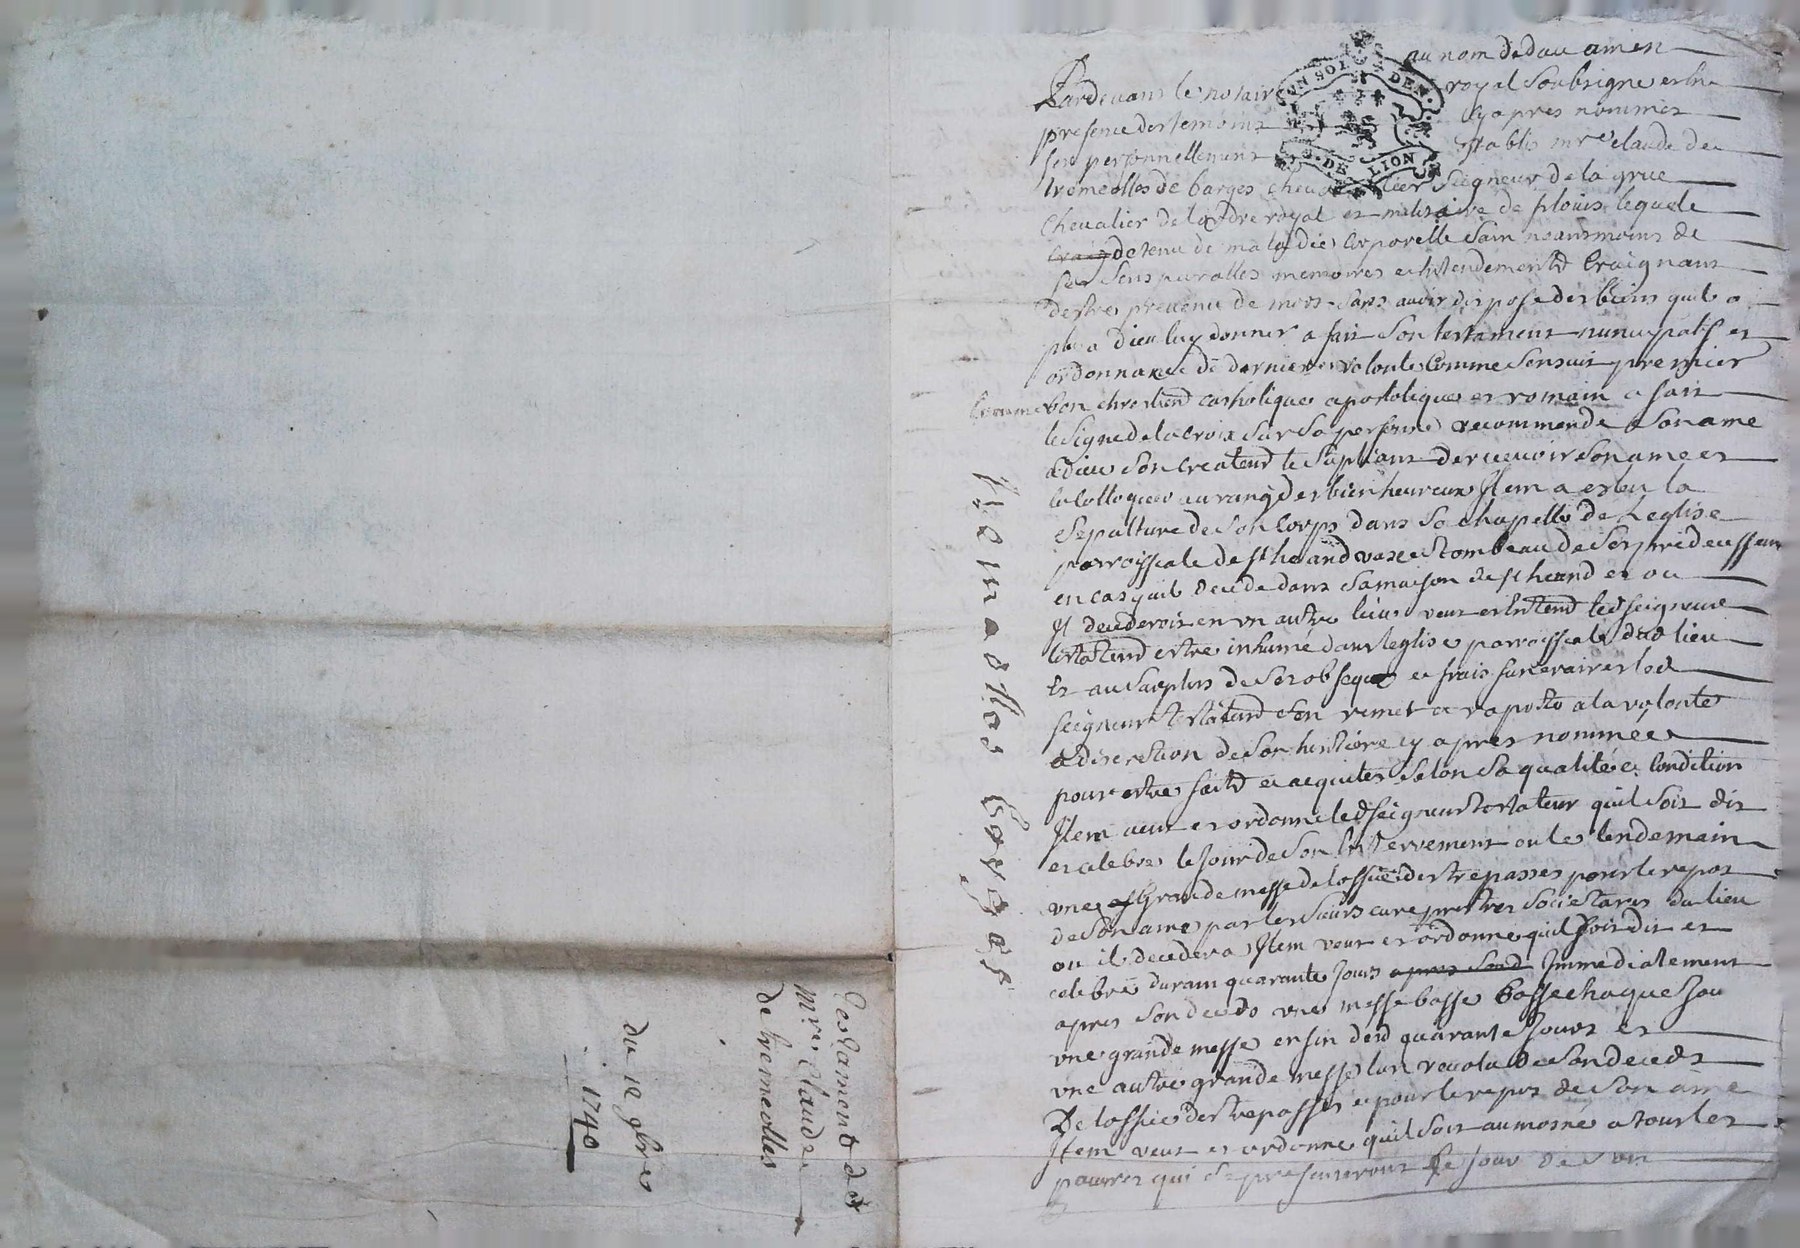 au nom de dieu amen
Pardevant le notaire royal soubsigne et en
presence des temoins cy apres nommes
fut personnellement establis mre claude de
tremeolles de barges chevallier seigneur de la grue
chevalier de lordre royal et militaire de st louis lequel
detenu de maladie corporelle sain neantmoins de
ses sens parolles memoires et entendement craignant
destre prevenu de mort sans avoir dispose des biens quil a
plu a dieu luy donner a fait son testament nuncupatif et
ordonnance de derniere volonte comme sensuit premier
comme bon chrestien catholique apostolique et romain a fait
le signe de la croix sur sa personne recommende son ame
a dieu son createur le supliant de recevoir son ame et
la colloquer au rang des bienheureux Item a esleu la
sepulture de son corps dans sa chapelle de leglise
parroissiale de st heand vaze et tombeau de ses predecesseurs
en cas quil decede dans sa maison de st heand et ou
Il decederoit en un autre lieu veut et entend led seigneur
testateur estre inhumé dans leglise parroissiale dud lieu
Et au surplus de ses obseques et frais funeraires led
seigneur testateur sen remet et raporte a la volonte
et discretion de son heritiere cy apres nommée
pour estre faits et acquites selon sa qualité et condition
Item veut et ordonne led seigneur testateur quil soit dit
et celebre le jour de son enterrement ou le lendemain
une grande messe de loffice des trepasses pour le repos
de son ame par les sieurs curé prestres societaires du lieu
ou il decedera Item veut et ordonne quil soit dit et
celebré durant quarante jours apres sond Immediatement
apres son deceds une messe basse basse chaque jou
une grande messe en fin desd quarante jours et
une autre grande messe lan revolu de son deceds
De loffice des trepasses et pour le repos de son ame
Item veut et ordonne quil soit aumosné a tous les
pauvres qui se presenteront le jour de son
ON SOI DEN
G. DE LION
Tremaollas Bargas
Testament de
mre Claude
de tremeolles
du 12 9bre
1740